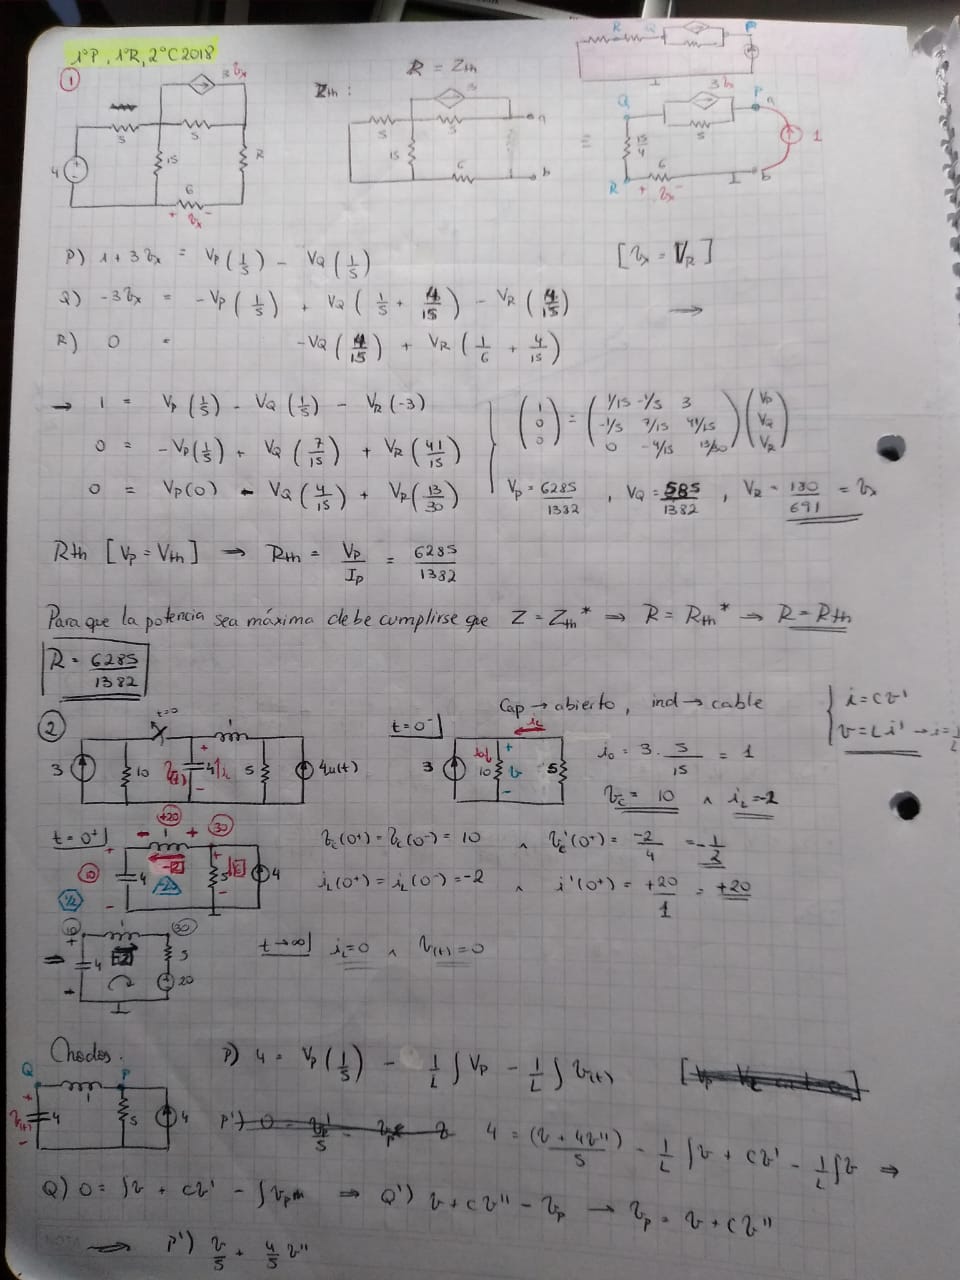 1ºP, 1ºR, 2ºC 2018
1
R = Zth
Zth:
3 Vx
5
5
4
15
R
6
+ Vx -
5
5
15
6
a
b
≡
Q
P
3 Vx
15/4
5
1
R
6
+ Vx -
a
b
P) 1 + 3Vx = Vp (1/5) - VQ (1/5) [Vx = VR]
Q) -3Vx = -Vp (1/5) + VQ (1/5 + 4/15) - VR (4/15) →
R) 0 = -VQ (4/15) + VR (1/6 + 4/15)
→ 1 = Vp (1/5) - VQ (1/5) - VR (-3)
0 = -Vp (1/5) + VQ (7/15) + VR (41/15)
0 = Vp (0) - VQ (4/15) + VR (13/30)
(1 0 0) = (1/15 -1/5 3
-1/5 7/15 41/15
0 -4/15 13/30) (Vp VQ VR)
Vp = 6285/1382 , VQ = 585/1382 , VR = 130/691 = Vx
Rth [Vp = Vth] → Rth = Vp/Ip = 6285/1382
Para que la potencia sea máxima debe cumplirse que Z = Zth* ⇒ R = Rth* → R = Rth
R = 6285/1382
2
t=0
3
10
4
1
5
4u(t)
t=0-
Cap → abierto, ind → cable
i = CV'
V = Li'
3
10
5
i0 = 3 · 5/15 = 1
Vc = 10 ∧ iL = -2
t=0+
+20
30
10
4
1
5
4
Vc(0+) = Vc(0-) = 10 ∧ Vc'(0+) = -2/4 = -1/2
iL(0+) = iL(0-) = -2 ∧ i'(0+) = +20/1 = +20
10
30
1
4
5
20
t→∞ iL = 0 ∧ V(t) = 0
Q
P
V(t)
4
1
5
4
P) 4 = Vp (1/5) - 1/L ∫Vp - 1/L ∫V(t)
4 = (V + 4V'')/5 - 1/L ∫V + CV' - 1/L ∫V ⇒
Q) 0 = ∫V + CV' - ∫Vp ⇒ Q') V + CV'' - Vp → Vp = V + CV''
⇒ P') V/5 + 4/5 V''